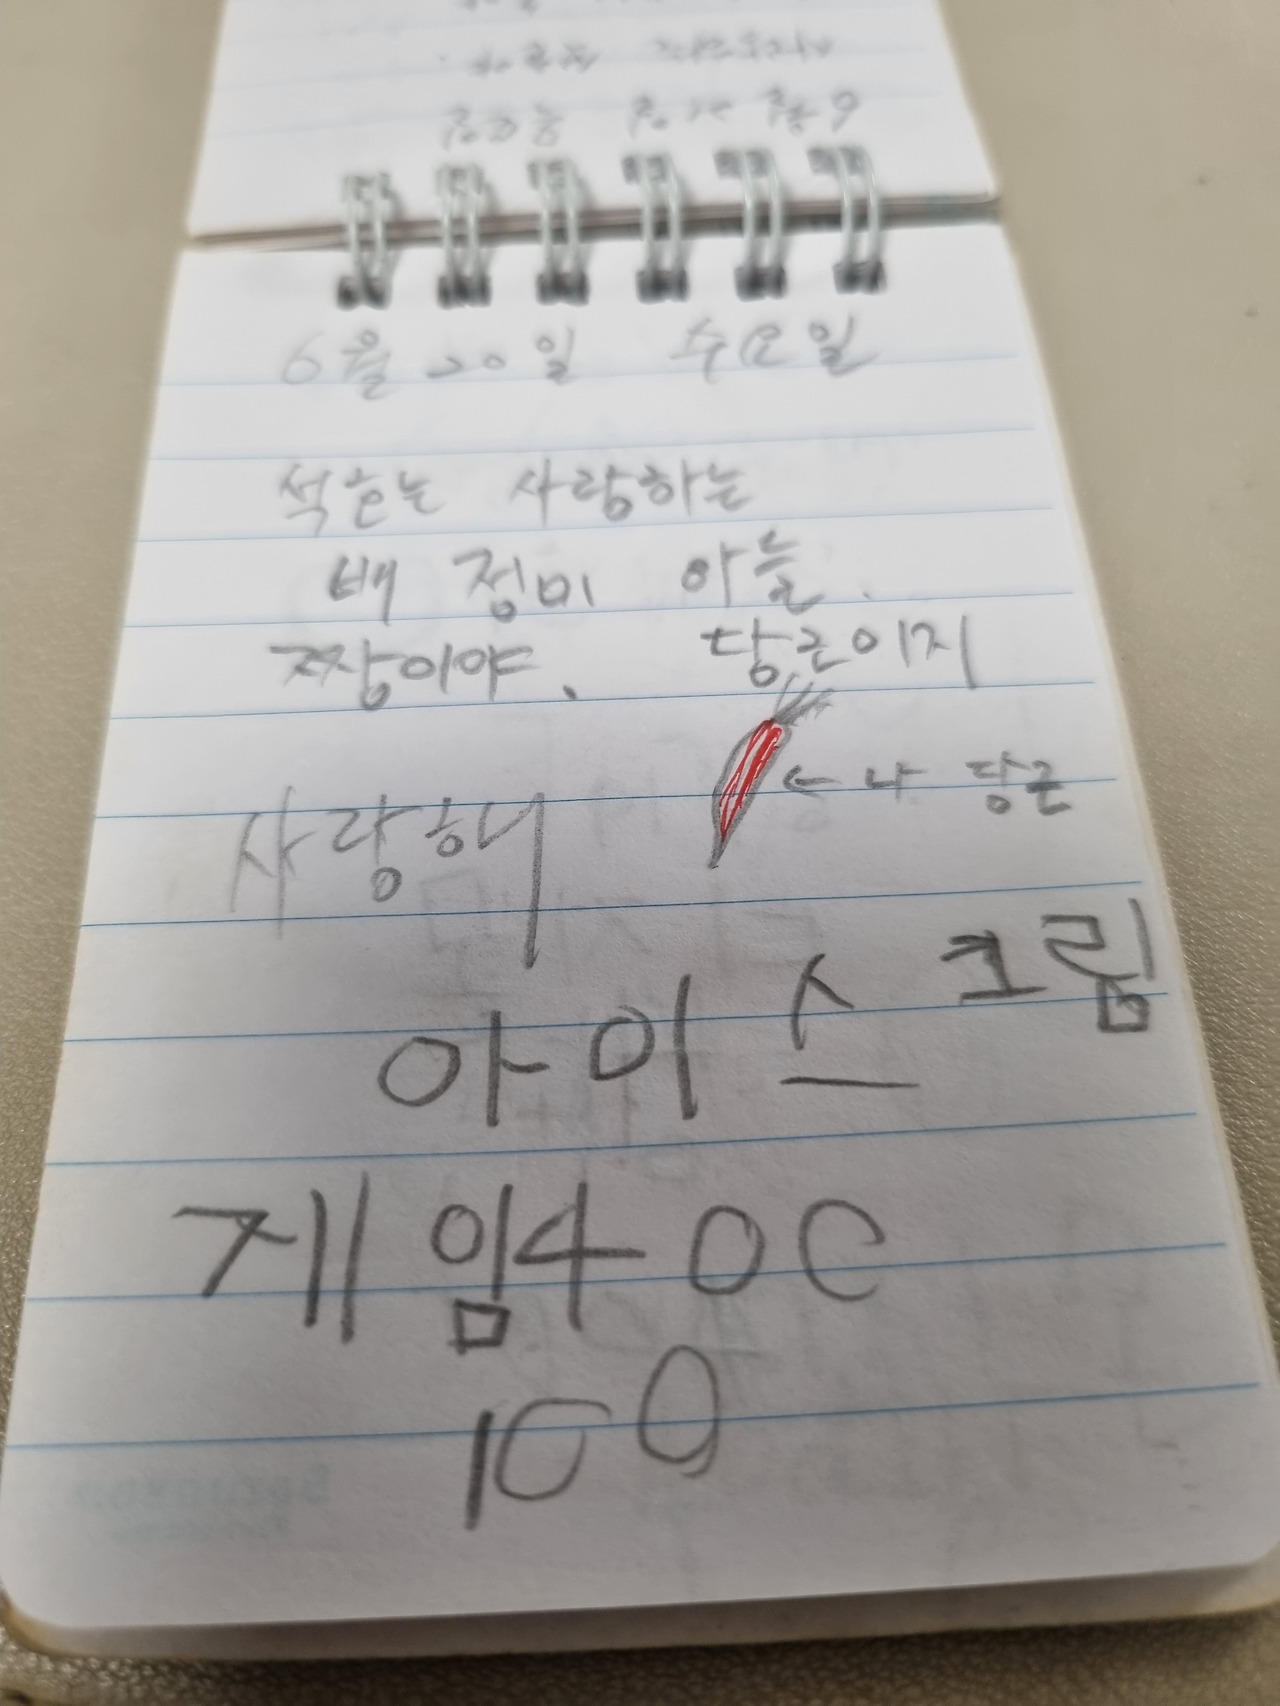 6월 20일 수요일
석호는 사랑하는
배 정미 아늘.
짱이야. 당근이지
← 나 당근
사랑해
아이스크림
게임400
100